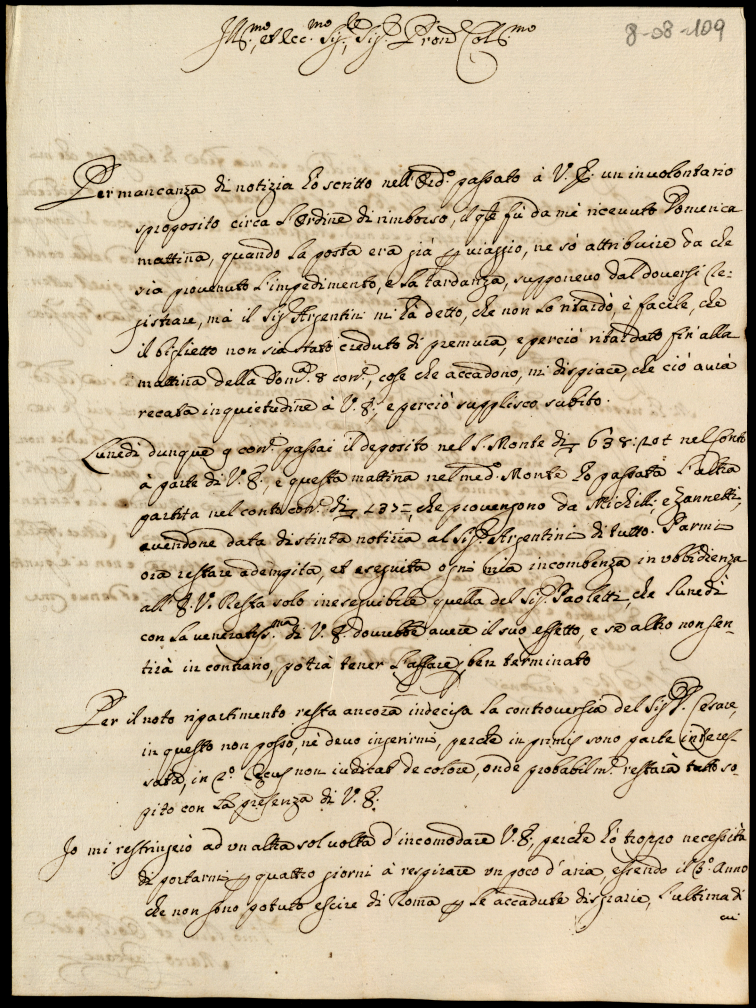 8-08-109
Ill.mo, et Ecc.mo Sig.re, Sig.r, Pron.e Col.mo
Per mancanza di notizia hò scritto nell'Ord.o passato à V. E. un involontario
sproposito circa l'ordine di rimborso, il q.le fù da mè ricevuto Domenica
mattina, quando la posta era già p viaggio, ne sò attribuire da che
sia provenuto l'impedimento, e la tardanza, supponevo dal doversi re=
gistrare, mà il Sig.r Argentini mi hà detto, che non lo ritardò, è facile, che
il biglietto non sia stato creduto di premura, e perciò ritardato fin'alla
mattina della Dom.ca 8 corr.e, cose che accadono, mi dispiace, che ciò avrà
recata inquietudine à V. E., e perciò supplisco subito.
Lunedì dunque 9 corr.e passai il deposito nel S. Monte di 638:20 nel Conto
à parte di V. E., e questa mattina nel med.o Monte hò passata l'altra
partita nel conto corr.e di 437, che provengono da Michilli, e Zannetti,
avendone data distinta notizia al Sig.r Argentini di tutto. Parmi
ora restare adempita, et eseguita ogni mia incombenza in ubbidienza
all'E. V. Resta solo ineseguibile quella del Sig.r Paoletti, che lunedì
con la veneratiss.ma di V. E. dovrebbe avere il suo effetto, e se altro non sen-
tirà in contrario, potrà tener l'affare ben terminato
Per il noto ripartimento resta ancora indecisa la controversia del Sig.r Cesare,
in questo non posso, nè devo inserirmi, perche in primis sono parte interes-
sata, in 2.o Cecus non iudicat de colore, onde probabilm.e restarà tutto so-
pito con la presenza di V. E.
Io mi restringerò ad un altra sol volta d'incomodare V. E., perche hò troppo necessità
di portarmi p quattro giorni à respirare un poco d'aria, essendo il 3.o Anno
che non sono potuto escire di Roma p le accadute disgrazie, l'ultima di
cui